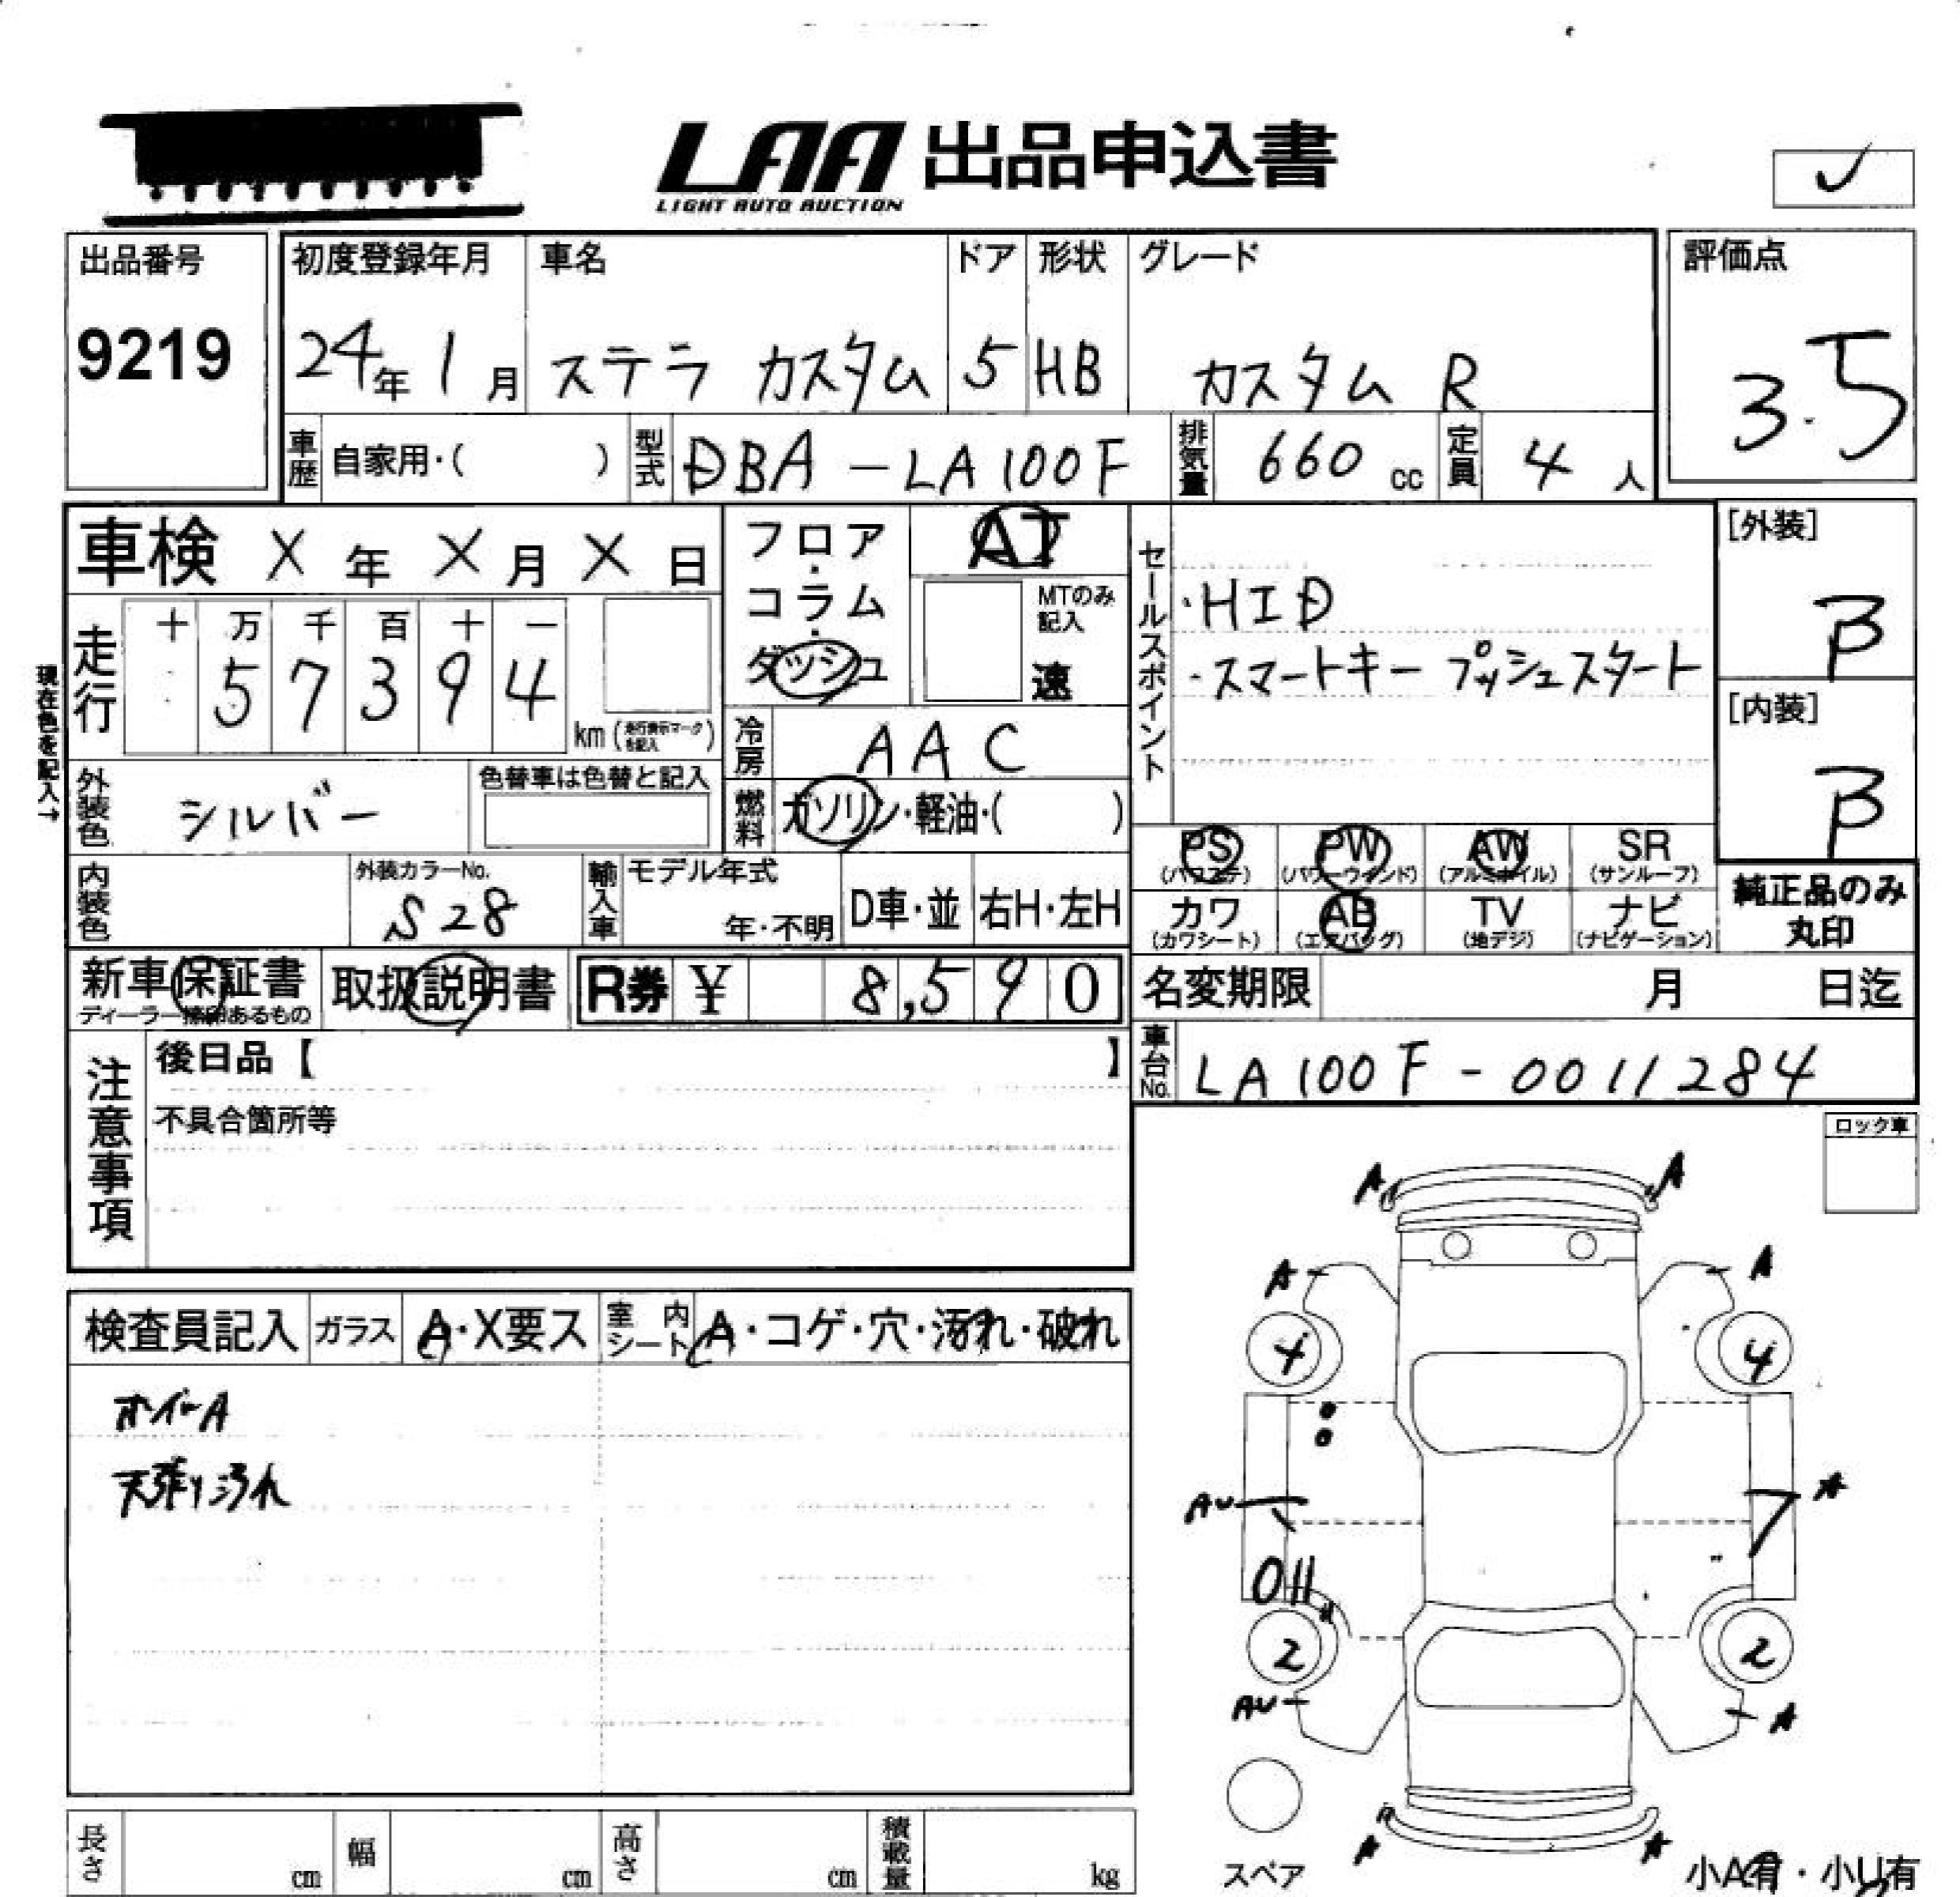 LAA 出品申込書
LIGHT AUTO AUCTION
✓
出品番号
9219
初度登録年月
24年 1月
車名
ステラ カスタム
ドア
5
形状
HB
グレード
カスタム R
評価点
3.5
車歴 自家用・( )
型式 DBA-LA100F
排気量 660 cc
定員 4 人
車検 X 年 X 月 X 日
フロア・コラム・ダッシュ
AT
MTのみ記入
速
セールスポイント
・HID
・スマートキー プッシュスタート
[外装]
B
[内装]
B
現在色を記入→
走行
十 万 千 百 十 一
5 7 3 9 4
km (走行表示マークを記入)
冷房 AAC
外装色 シルバー
色替車は色替と記入
燃料 ガソリン・軽油・( )
PS (パワステ)
PW (パワーウィンド)
AW (アルミホイル)
SR (サンルーフ)
カワ (カワシート)
AB (エアバッグ)
TV (地デジ)
ナビ (ナビゲーション)
純正品のみ
丸印
内装色
外装カラーNo.
S28
輸入車
モデル年式
年・不明
D車・並
右H・左H
新車保証書
取扱説明書
R券 ¥ 8,590
名変期限 月 日迄
車台No. LA100F-0011284
注意事項
後日品【 】
不具合箇所等
ロック車
検査員記入
ガラス A・X要ス
室内シート A・コゲ・穴・汚れ・破れ
ホイールA
天張り汚れ
A
A
A
A
4
4
AU
A
2
2
AU
A
A
A
スペア
小A有・小U有
長さ cm
幅 cm
高さ cm
積載量 kg